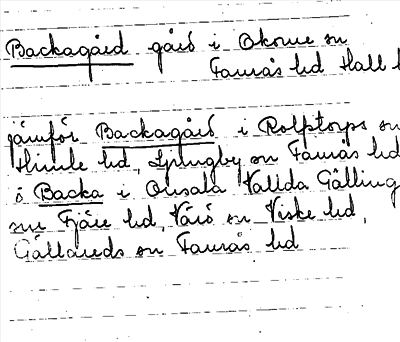 Backagård gård i Okome sn
Faurås hd Hall
jämför Backagård i Rolfstorps sn
Himle hd, Ljungby sn Faurås hd
o Backa i Onsala Vallda Gälling
snr Fjäre hd, Värö sn Viske hd,
Gällareds sn Faurås hd